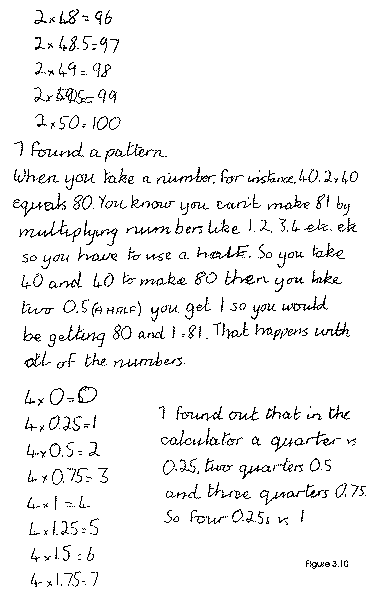 2 × 48 = 96
2 × 48.5 = 97
2 × 49 = 98
2 × 49.5 = 99
2 × 50 = 100
I found a pattern.
When you take a number, for instance, 40. 2 × 40
equals 80. You know you can't make 81 by
multiplying numbers like 1, 2, 3, 4 etc. etc
so you have to use a half. So you take
40 and 40 to make 80 then you take
two 0.5 (A HALF) you get 1 so you would
be getting 80 and 1 = 81. That happens with
all of the numbers.
4 × 0 = 0
4 × 0.25 = 1
4 × 0.5 = 2
4 × 0.75 = 3
4 × 1 = 4
4 × 1.25 = 5
4 × 1.5 = 6
4 × 1.75 = 7
I found out that in the
calculator a quarter is
0.25, two quarters 0.5
and three quarters 0.75.
So four 0.25s is 1
Figure 3.10